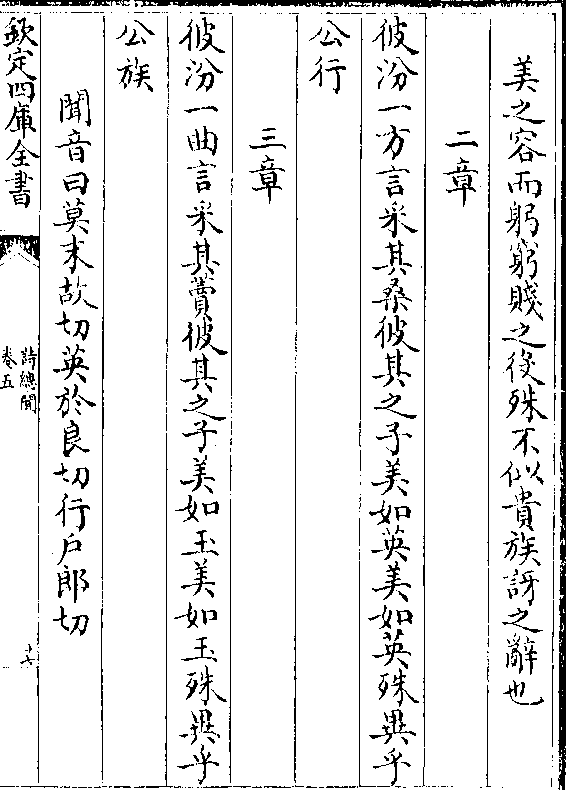 美之容而躬窮賤之役殊不似貴族訝之辭也
二章
彼汾一方言采其桑彼其之子美如英美如英殊異乎
公行
三章
彼汾一曲言采其藚彼其之子美如玉美如玉殊異乎
公族
聞音曰莫末故切英於良切行戶郎切
欽定四庫全書
詩總聞
卷五
十六